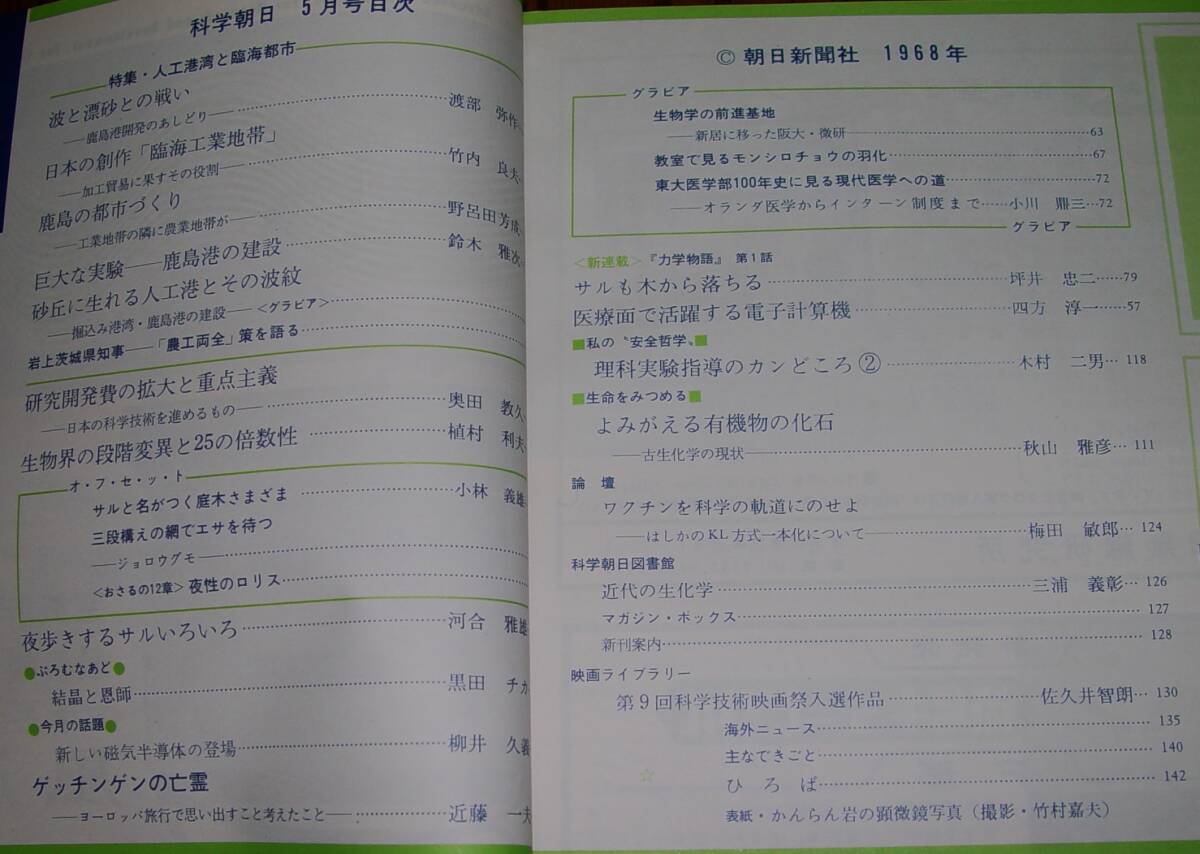 科学朝日 5月号目次
特集・人工港湾と臨海都市
波と漂砂との戦い
――鹿島港開発のあしどり―― 渡部 弥作
日本の創作「臨海工業地帯」
――加工貿易に果すその役割―― 竹内 良夫
鹿島の都市づくり
――工業地帯の隣に農業地帯が―― 野呂田芳成
巨大な実験――鹿島港の建設 鈴木 雅次
砂丘に生れる人工港とその波紋
――掘込み港湾・鹿島港の建設――<グラビア>
岩上茨城県知事――「農工両全」策を語る
研究開発費の拡大と重点主義
――日本の科学技術を進めるもの―― 奥田 教久
生物界の段階変異と25の倍数性 植村 利夫
オ・フ・セ・ッ・ト
サルと名がつく庭木さまざま 小林 義雄
三段構えの網でエサを待つ
――ジョロウグモ――
<おさるの12章>夜性のロリス
夜歩きするサルいろいろ 河合 雅雄
●ぷろむなあど●
結晶と恩師 黒田 チカ
●今月の話題●
新しい磁気半導体の登場 柳井 久義
ゲッチンゲンの亡霊
――ヨーロッパ旅行で思い出すこと考えたこと―― 近藤 一夫
© 朝日新聞社 1968年
グラビア
生物学の前進基地
――新居に移った阪大・微研――63
教室で見るモンシロチョウの羽化……67
東大医学部100年史に見る現代医学への道……72
――オランダ医学からインターン制度まで……小川 鼎三…72
グラビア
<新連載>『力学物語』 第1話
サルも木から落ちる……坪井 忠二……79
医療面で活躍する電子計算機……四方 淳一……57
■私の〝安全哲学〟■
理科実験指導のカンどころ②……木村 二男…118
■生命をみつめる■
よみがえる有機物の化石
――古生化学の現状――秋山 雅彦…111
論 壇
ワクチンを科学の軌道にのせよ
――はしかのKL方式一本化について――梅田 敏郎…124
科学朝日図書館
近代の生化学……三浦 義彰…126
マガジン・ボックス……127
新刊案内……128
映画ライブラリー
第9回科学技術映画祭入選作品……佐久井智朗…130
海外ニュース……135
主なできごと……140
ひ ろ ば……142
表紙・かんらん岩の顕微鏡写真(撮影・竹村嘉夫)